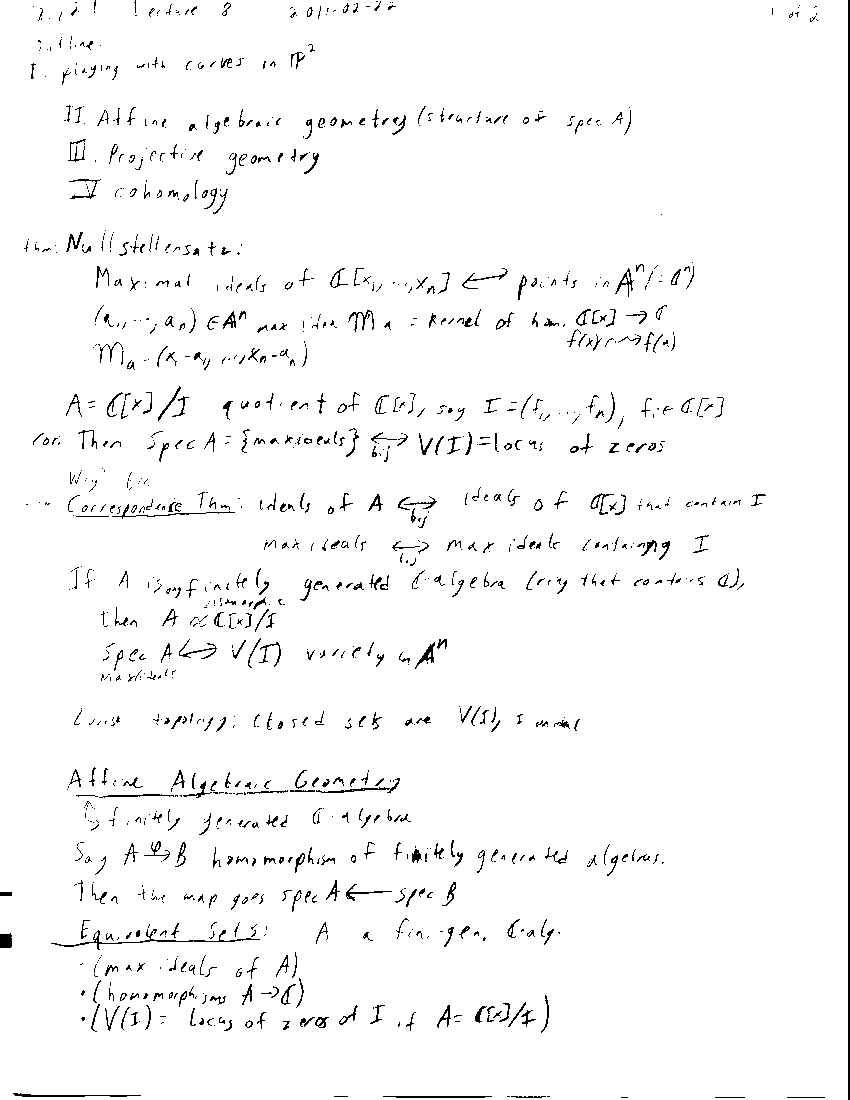 Lecture 8 2011-02-22 1 of 2
Outline:
I. playing with curves in ℙ²
II. Affine algebraic geometry (structure of spec A)
III. Projective geometry
IV cohomology
thm: Nullstellensatz:
Maximal ideals of ℂ[x₁,...,xₙ] ⟷ points in 𝔸ⁿ(=ℂⁿ)
(a₁,...,aₙ) ∈ 𝔸ⁿ max idea 𝔪ₐ = kernel of hom. ℂ[x] → ℂ
f(x) ⇝ f(a)
𝔪ₐ = (x₁-a₁, ..., xₙ-aₙ)
A = ℂ[x]/I quotient of ℂ[x], say I = (f₁,...,fₙ), fᵢ ∈ ℂ[x]
Cor. Then Spec A = {max ideals} ⟷ V(I) = locus of zeros
bij
Why?
Correspondence Thm: ideals of A ⟷ ideals of ℂ[x] that contain I
bij
max ideals ⟷ max ideals containing I
bij
If A is any finitely generated ℂ-algebra (ring that contains ℂ),
isomorphic
then A ≈ ℂ[x]/I
Spec A ⟷ V(I) variety in 𝔸ⁿ
max ideals
topology: closed sets are V(I), I ideal
Affine Algebraic Geometry
↳ finitely generated ℂ-algebra
Say A →φ B homomorphism of finitely generated algebras.
Then the map goes spec A ← spec B
Equivalent Sets: A a fin. gen. ℂ-alg.
· (max ideals of A)
· (homomorphisms A → ℂ)
· (V(I) = locus of zeros of I if A = ℂ[x]/I)